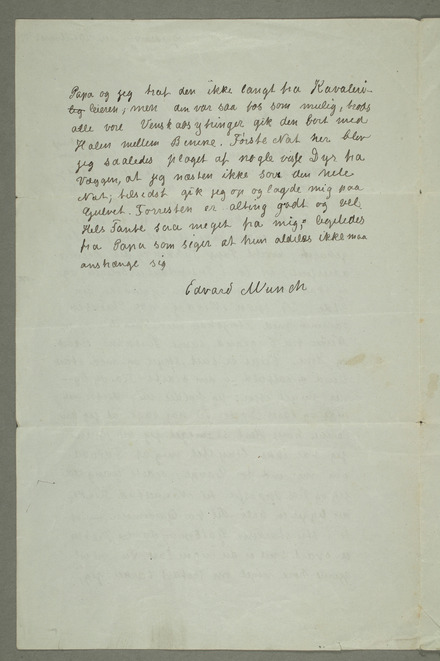 Papa og jeg traf den ikke langt fra Kavaleri-
leieren; men den var saa bøs som mulig, trods
alle vore Venskabsytringer gik den bort med
Halen mellem Benene. Første Nat her blev
jeg saaledes plaget af nogle væse Dyr fra
Væggen, at jeg næsten ikke sov den hele
Nat; tilsidst gik jeg op og lagde mig paa
Gulvet. Forresten er alting godt og vel.
Hils Tante saa meget fra mig, ligeledes
fra Papa som siger at hun aldeles ikke maa
anstrænge sig
Edvard Munch